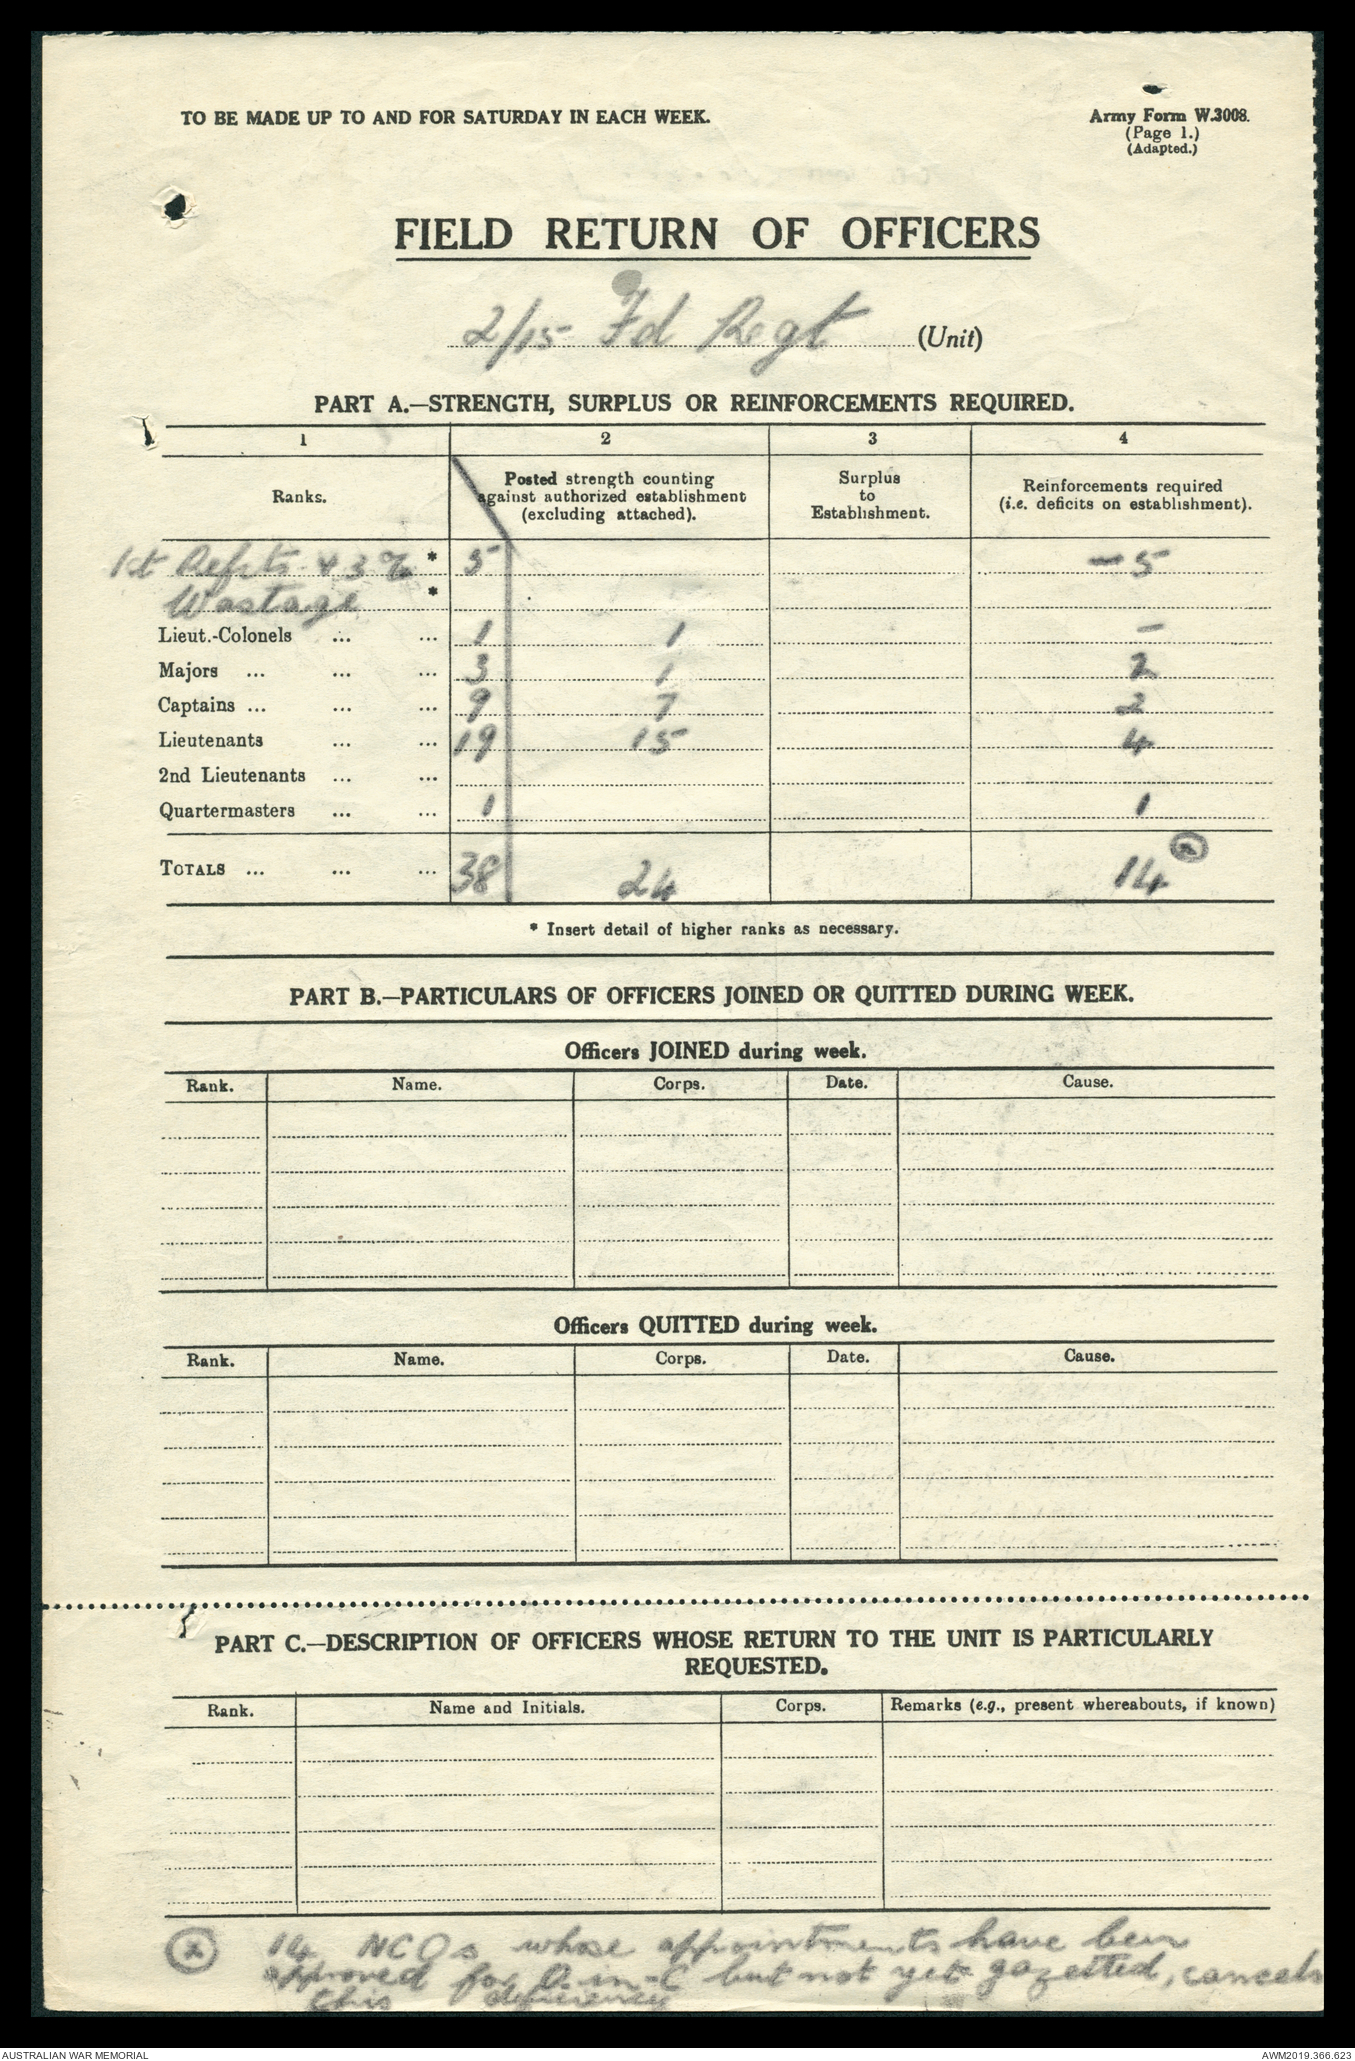 TO BE MADE UP TO AND FOR SATURDAY IN EACH WEEK.
Army Form W.3008.
(Page 1.)
(Adapted.)
FIELD RETURN OF OFFICERS
2/15 Fd Regt (Unit)
PART A.—STRENGTH, SURPLUS OR REINFORCEMENTS REQUIRED.
1 2 3 4
Ranks. Posted strength counting against authorized establishment (excluding attached). Surplus to Establishment. Reinforcements required (i.e. deficits on establishment).
1st Refts + 3% * 5 — 5
Wastage *
Lieut.-Colonels ... ... 1 1 —
Majors ... ... ... 3 1 2
Captains ... ... ... 9 7 2
Lieutenants ... ... 19 15 4
2nd Lieutenants ... ...
Quartermasters ... ... 1 1
TOTALS ... ... ... 38 24 14
* Insert detail of higher ranks as necessary.
PART B.—PARTICULARS OF OFFICERS JOINED OR QUITTED DURING WEEK.
Officers JOINED during week.
Rank. Name. Corps. Date. Cause.
Officers QUITTED during week.
Rank. Name. Corps. Date. Cause.
PART C.—DESCRIPTION OF OFFICERS WHOSE RETURN TO THE UNIT IS PARTICULARLY
REQUESTED.
Rank. Name and Initials. Corps. Remarks (e.g., present whereabouts, if known)
14 NCOs whose appointments have been
approved for G.in-C but not yet gazetted, cancels
this deficiency
AUSTRALIAN WAR MEMORIAL
AWM2019.366.623